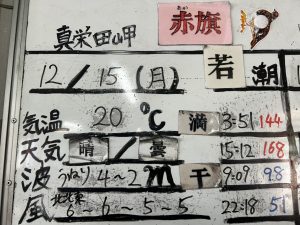 真栄田岬 赤旗
12/15(月) 若潮
気温 20℃ 満 3:51 144
天気 晴/曇 15:12 168
波 うねり 4~2m 干 9:09 98
風 北北東 6~6~5~5 22:18 51